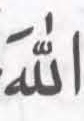 اللّٰهَ